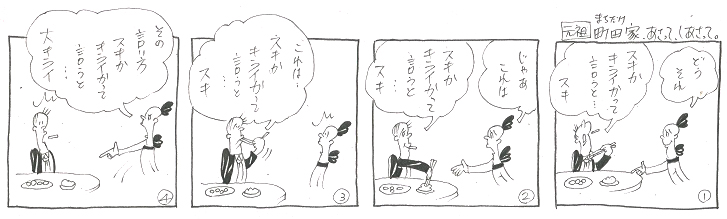 元祖 町田家、あさって、しあさって。
まちだけ
どう
それ
スキか
キライかって
言うと…
スキ
①
じゃあ
これは
スキか
キライかって
言うと
…
②
これは…
スキか
キライかって
言うと
…
スキ
③
その
言い方
スキか
キライかって
言うと
…
大キライ
④